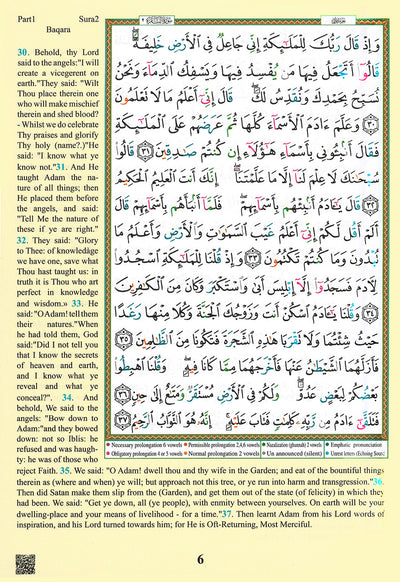 Part1 Sura2
Baqara
30. Behold, thy Lord
said to the angels:"I will
create a vicegerent on
earth."They said: "Wilt
Thou place therein one
who will make mischief
therein and shed blood?
- Whilst we do celebrate
Thy praises and glorify
Thy holy (name?.)"He
said: "I know what ye
know not."31. And He
taught Adam the na-
ture of all things; then
He placed them before
the angels, and said:
"Tell Me the nature of
these if ye are right."
32. They said: "Glory
to Thee: of knowledge
we have one, save what
Thou hast taught us: in
truth it is Thou who art
perfect in knowledge
and wisdom.» 33. He
said: "O Adam! tell them
their natures."When
he had told them, God
said:"Did I not tell you
that I know the secrets
of heaven and earth,
and I know what ye
reveal and what ye
conceal?". 34. And
behold, We said to the
angels: "Bow down to
Adam:"and they bowed
down: not so Iblis: he
refused and was haugh-
ty: he was of those who
reject Faith. 35. We said: "O Adam! dwell thou and thy wife in the Garden; and eat of the bountiful things
therein as (where and when) ye will; but approach not this tree, or ye run into harm and transgression."36.
Then did Satan make them slip from the (Garden), and get them out of the state (of felicity) in which they
had been. We said: "Get ye down, all (ye people), with enmity between yourselves. On earth will be your
dwelling-place and your means of livelihood - for a time."37. Then learnt Adam from his Lord words of
inspiration, and his Lord turned towards him; for He is Oft-Returning, Most Merciful.
وَإِذْ قَالَ رَبُّكَ لِلْمَلَـٰٓئِكَةِ إِنِّى جَاعِلٌ فِى ٱلْأَرْضِ خَلِيفَةً ۖ
قَالُوٓا۟ أَتَجْعَلُ فِيهَا مَن يُفْسِدُ فِيهَا وَيَسْفِكُ ٱلدِّمَآءَ وَنَحْنُ
نُسَبِّحُ بِحَمْدِكَ وَنُقَدِّسُ لَكَ ۖ قَالَ إِنِّىٓ أَعْلَمُ مَا لَا تَعْلَمُونَ
٣٠ وَعَلَّمَ ءَادَمَ ٱلْأَسْمَآءَ كُلَّهَا ثُمَّ عَرَضَهُمْ عَلَى ٱلْمَلَـٰٓئِكَةِ
فَقَالَ أَنۢبِـُٔونِى بِأَسْمَآءِ هَـٰٓؤُلَآءِ إِن كُنتُمْ صَـٰدِقِينَ ٣١ قَالُوا۟
سُبْحَـٰنَكَ لَا عِلْمَ لَنَآ إِلَّا مَا عَلَّمْتَنَآ ۖ إِنَّكَ أَنتَ ٱلْعَلِيمُ ٱلْحَكِيمُ
٣٢ قَالَ يَـٰٓـَٔادَمُ أَنۢبِئْهُم بِأَسْمَآئِهِمْ ۖ فَلَمَّآ أَنۢبَأَهُم بِأَسْمَآئِهِمْ قَالَ
أَلَمْ أَقُل لَّكُمْ إِنِّىٓ أَعْلَمُ غَيْبَ ٱلسَّمَـٰوَٰتِ وَٱلْأَرْضِ وَأَعْلَمُ مَا
تُبْدُونَ وَمَا كُنتُمْ تَكْتُمُونَ ٣٣ وَإِذْ قُلْنَا لِلْمَلَـٰٓئِكَةِ ٱسْجُدُوا۟
لِـَٔادَمَ فَسَجَدُوٓا۟ إِلَّآ إِبْلِيسَ أَبَىٰ وَٱسْتَكْبَرَ وَكَانَ مِنَ ٱلْكَـٰفِرِينَ
٣٤ وَقُلْنَا يَـٰٓـَٔادَمُ ٱسْكُنْ أَنتَ وَزَوْجُكَ ٱلْجَنَّةَ وَكُلَا مِنْهَا رَغَدًا
حَيْثُ شِئْتُمَا وَلَا تَقْرَبَا هَـٰذِهِ ٱلشَّجَرَةَ فَتَكُونَا مِنَ ٱلظَّـٰلِمِينَ ٣٥
فَأَزَلَّهُمَا ٱلشَّيْطَـٰنُ عَنْهَا فَأَخْرَجَهُمَا مِمَّا كَانَا فِيهِ ۖ وَقُلْنَا ٱهْبِطُوا۟
بَعْضُكُمْ لِبَعْضٍ عَدُوٌّ ۖ وَلَكُمْ فِى ٱلْأَرْضِ مُسْتَقَرٌّ وَمَتَـٰعٌ إِلَىٰ حِينٍ ٣٦
فَتَلَقَّىٰٓ ءَادَمُ مِن رَّبِّهِۦ كَلِمَـٰتٍ فَتَابَ عَلَيْهِ ۚ إِنَّهُۥ هُوَ ٱلتَّوَّابُ ٱلرَّحِيمُ ٣٧
Necessary prolongation 6 vowels Permissible prolongation 2,4,6 vowels Nazalization (ghunnah) 2 vowels Emphatic pronunciation
Obligatory prolongation 4 or 5 vowels Normal prolongation 2 vowels Un announced (silent) Unrest letters (Echoing Sound)
6